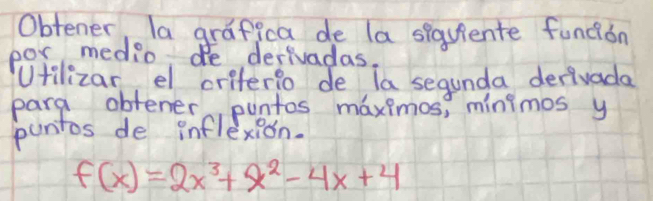 Obtener la gráfica de la siguiente función
por medio de derivadas.
Utilizar el criterio de la segunda derivada
para obtener puntos máximos, mínimos y
puntos de inflexión.
f(x) = 2x³ + x² - 4x + 4